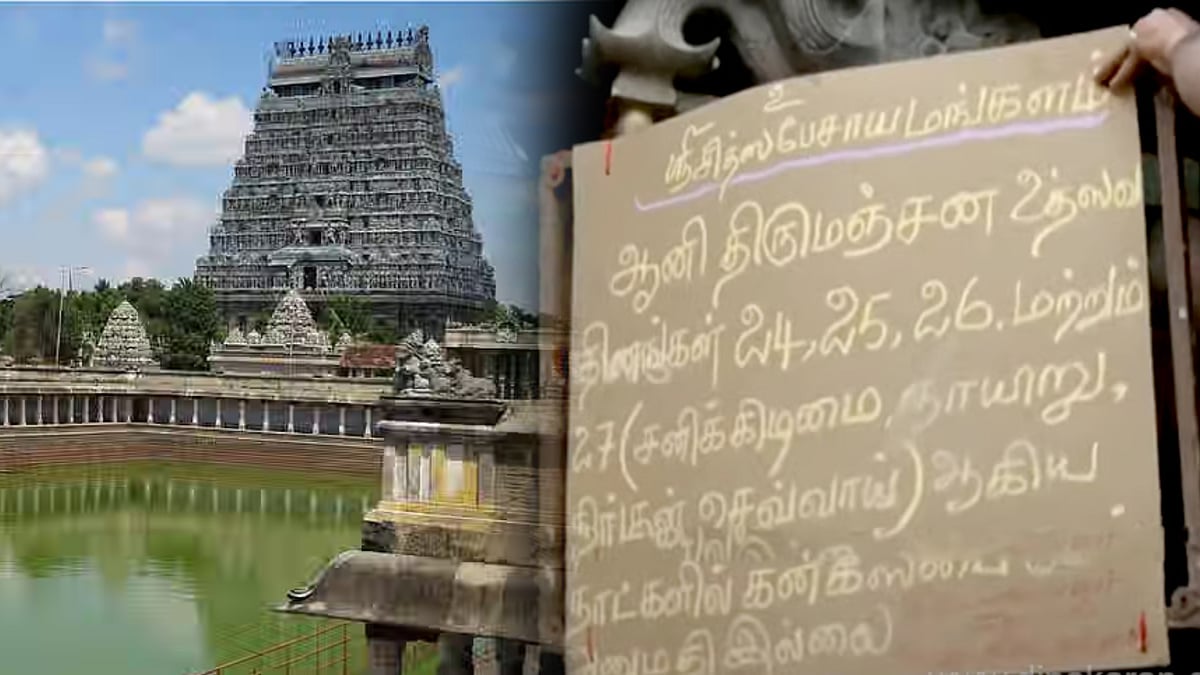 உ
ஸ்ரீசித்ஸபேசாய மங்களம்
ஆனி திருமஞ்சன உத்ஸவ
தினங்கள் 24, 25, 26, மற்றும்
27 (சனிக்கிடிமை, நாயிறு,
திங்கள், செவ்வாய்) ஆகிய
நாட்களில் கன்கஸபை
அனுமதி இல்லை